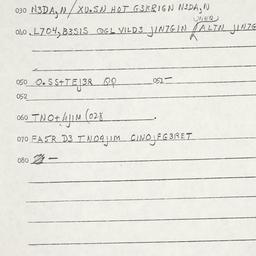 030 N3DA,N / XU.SN HOT G3KRIGN N2DA,N
040 L704,B3S1S OGL VILD3 JIN7GIN ALTN JIN7G
050 O.SS+TEJ3R QQ 052-
052
060 TNO+ (028 .
070 FASR D3 TNO4JIM CINOJFG3RET
080 -